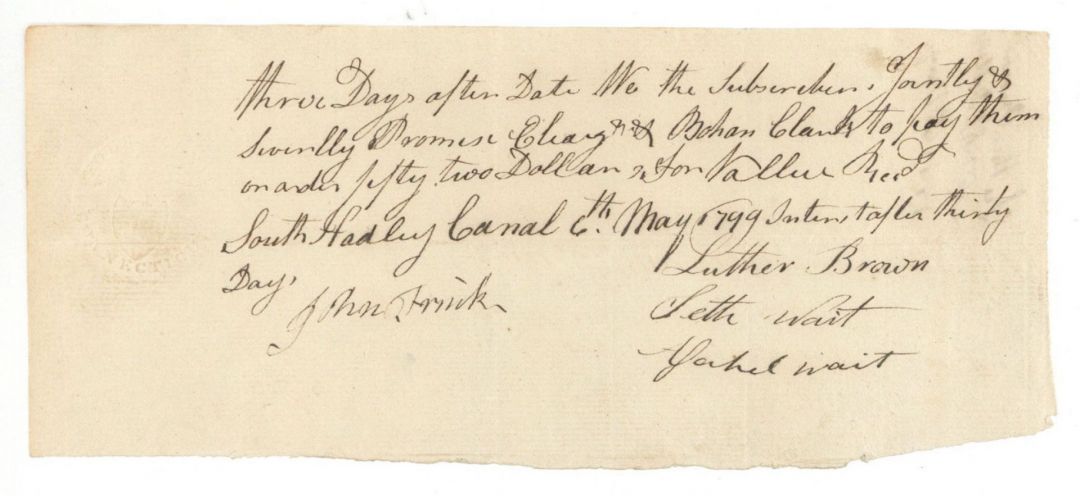 three Days after Date We the Subscribers Jointly &
Severlly Promise Eleazr & Bohan Clark to pay them
on order fifty two Dollars for Vallue Recd
South Hadley Canal 6th. May 1799 Interest after thirty
Days
Luther Brown
John Frink
Seth Wait
wait